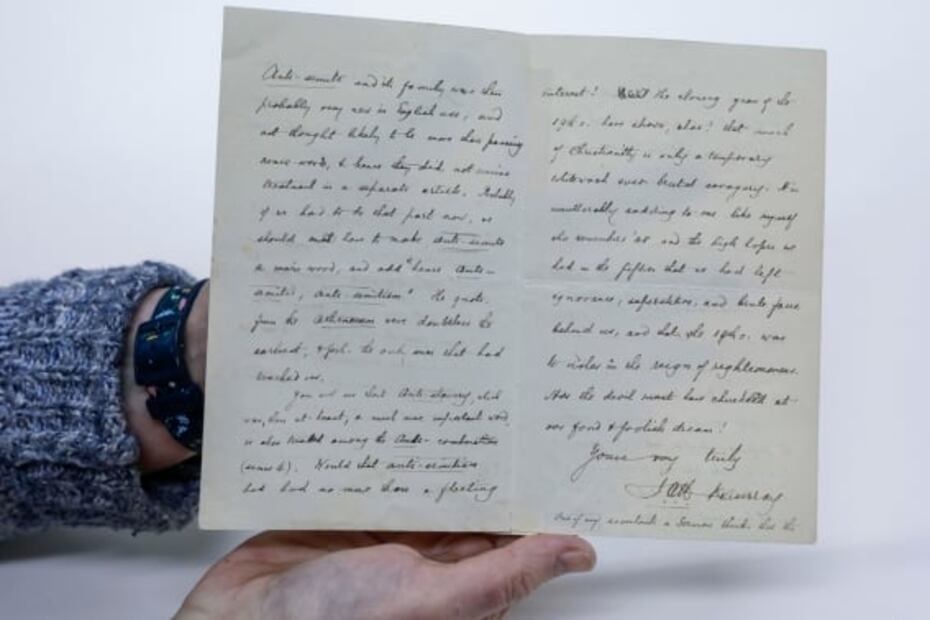 Anti-semite and its family were then
probably very new in English use, and
not thought likely to be more than passing
nonce-words, & hence they did not receive
treatment in a separate article. Probably
if we had to do that part now, we
should have to make Anti-semite
a main word, and add "hence Anti-
semitic, Anti-semitism". The quote.
from the Athenaeum were doubtless the
earliest, & prob. the only ones that had
reached us.
You see that Anti-slavery, which
was, then at least, a much more important word,
is also treated among the Anti- combinations
Would that anti-semitism
had had no more than a fleeting
interest! The closing years of the
19th c. have shown, alas! that much
of Christianity is only a temporary
whitewash over brutal savagery. It is
unutterably saddening to one like myself
who remembers '48 and the high hopes we
had in the fifties that we had left
ignorance, superstition, and brute force
behind us, and that the 19th c. was
to usher in the reign of righteousness.
How the devil must have chuckled at
our fond & foolish dream!
Yours very truly
J.A.H. Murray
One of my